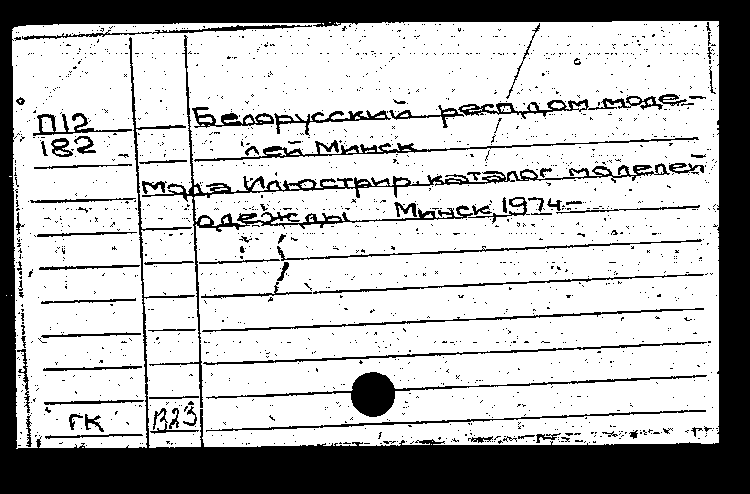 П12
182
Белорусский респ. дом моде-
лей. Минск
Мода. Илюстрир. каталог моделей
одежды Минск, 1974-
ГК В23